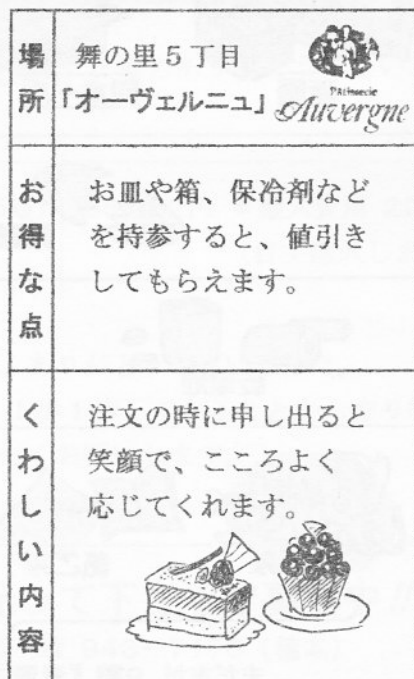 場所
舞の里5丁目
「オーヴェルニュ」
Pâtisserie
Auvergne
お得な点
お皿や箱、保冷剤など
を持参すると、値引き
してもらえます。
くわしい内容
注文の時に申し出ると
笑顔で、こころよく
応じてくれます。